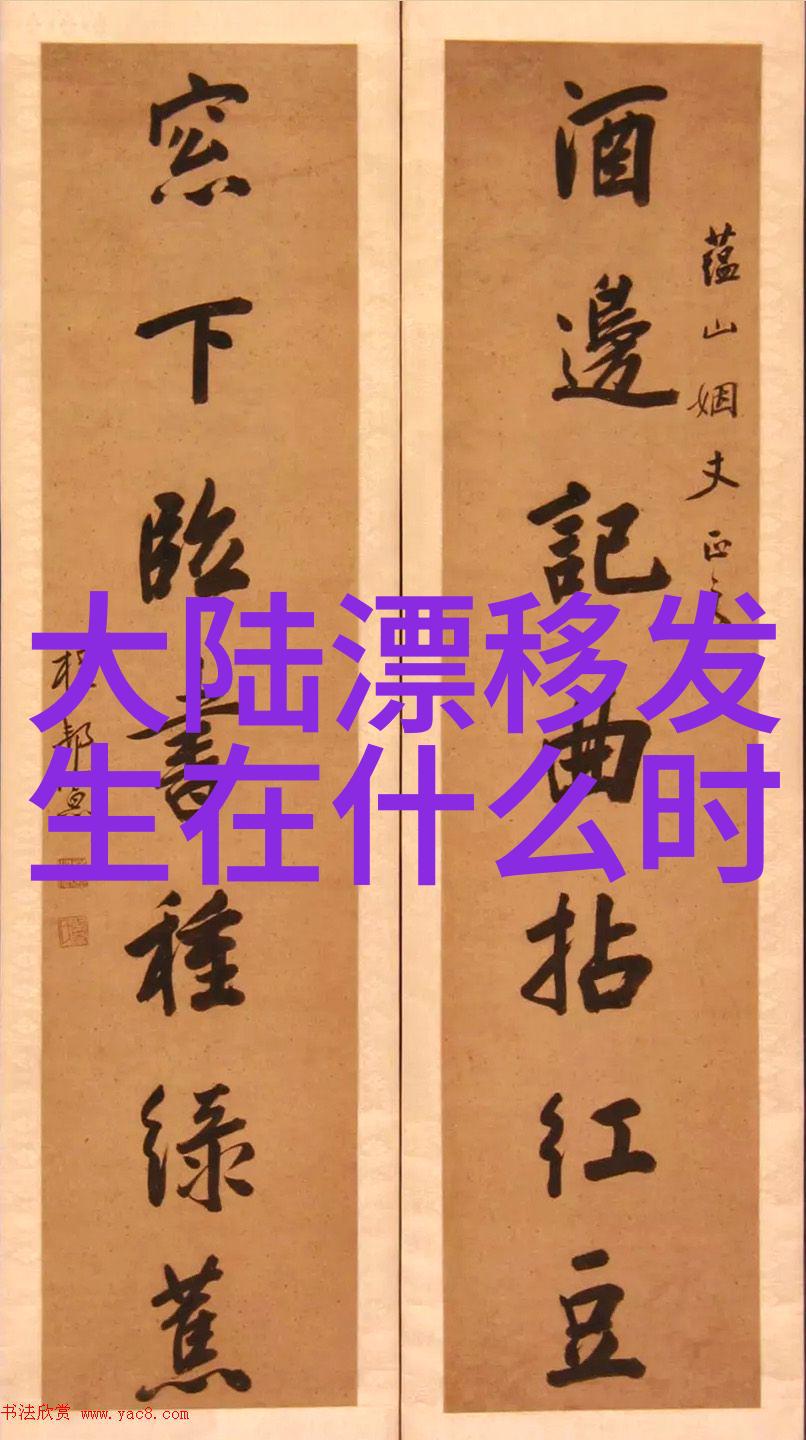 酒邊記曲拈紅豆
蘊山姻丈正之
窓下臨書種綠蕉
大陆漂移发
生在什么时
书法欣赏 www.yac8.com